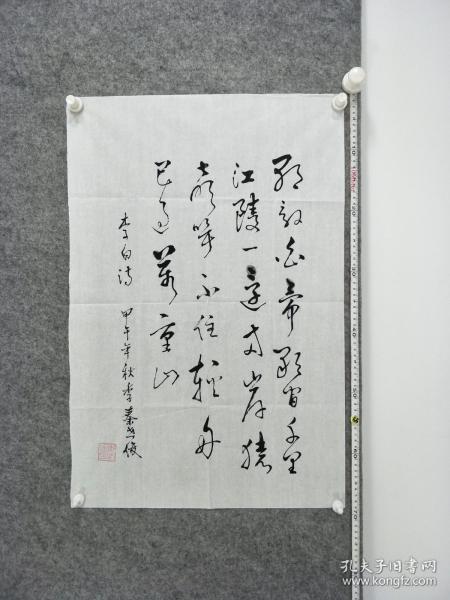 朝辞白帝彩云间千里
江陵一日还两岸猿
声啼不住轻舟
已过萬重山
李白诗 甲午年秋季 秦 俊
孔夫子旧书网
www.kongfz.com